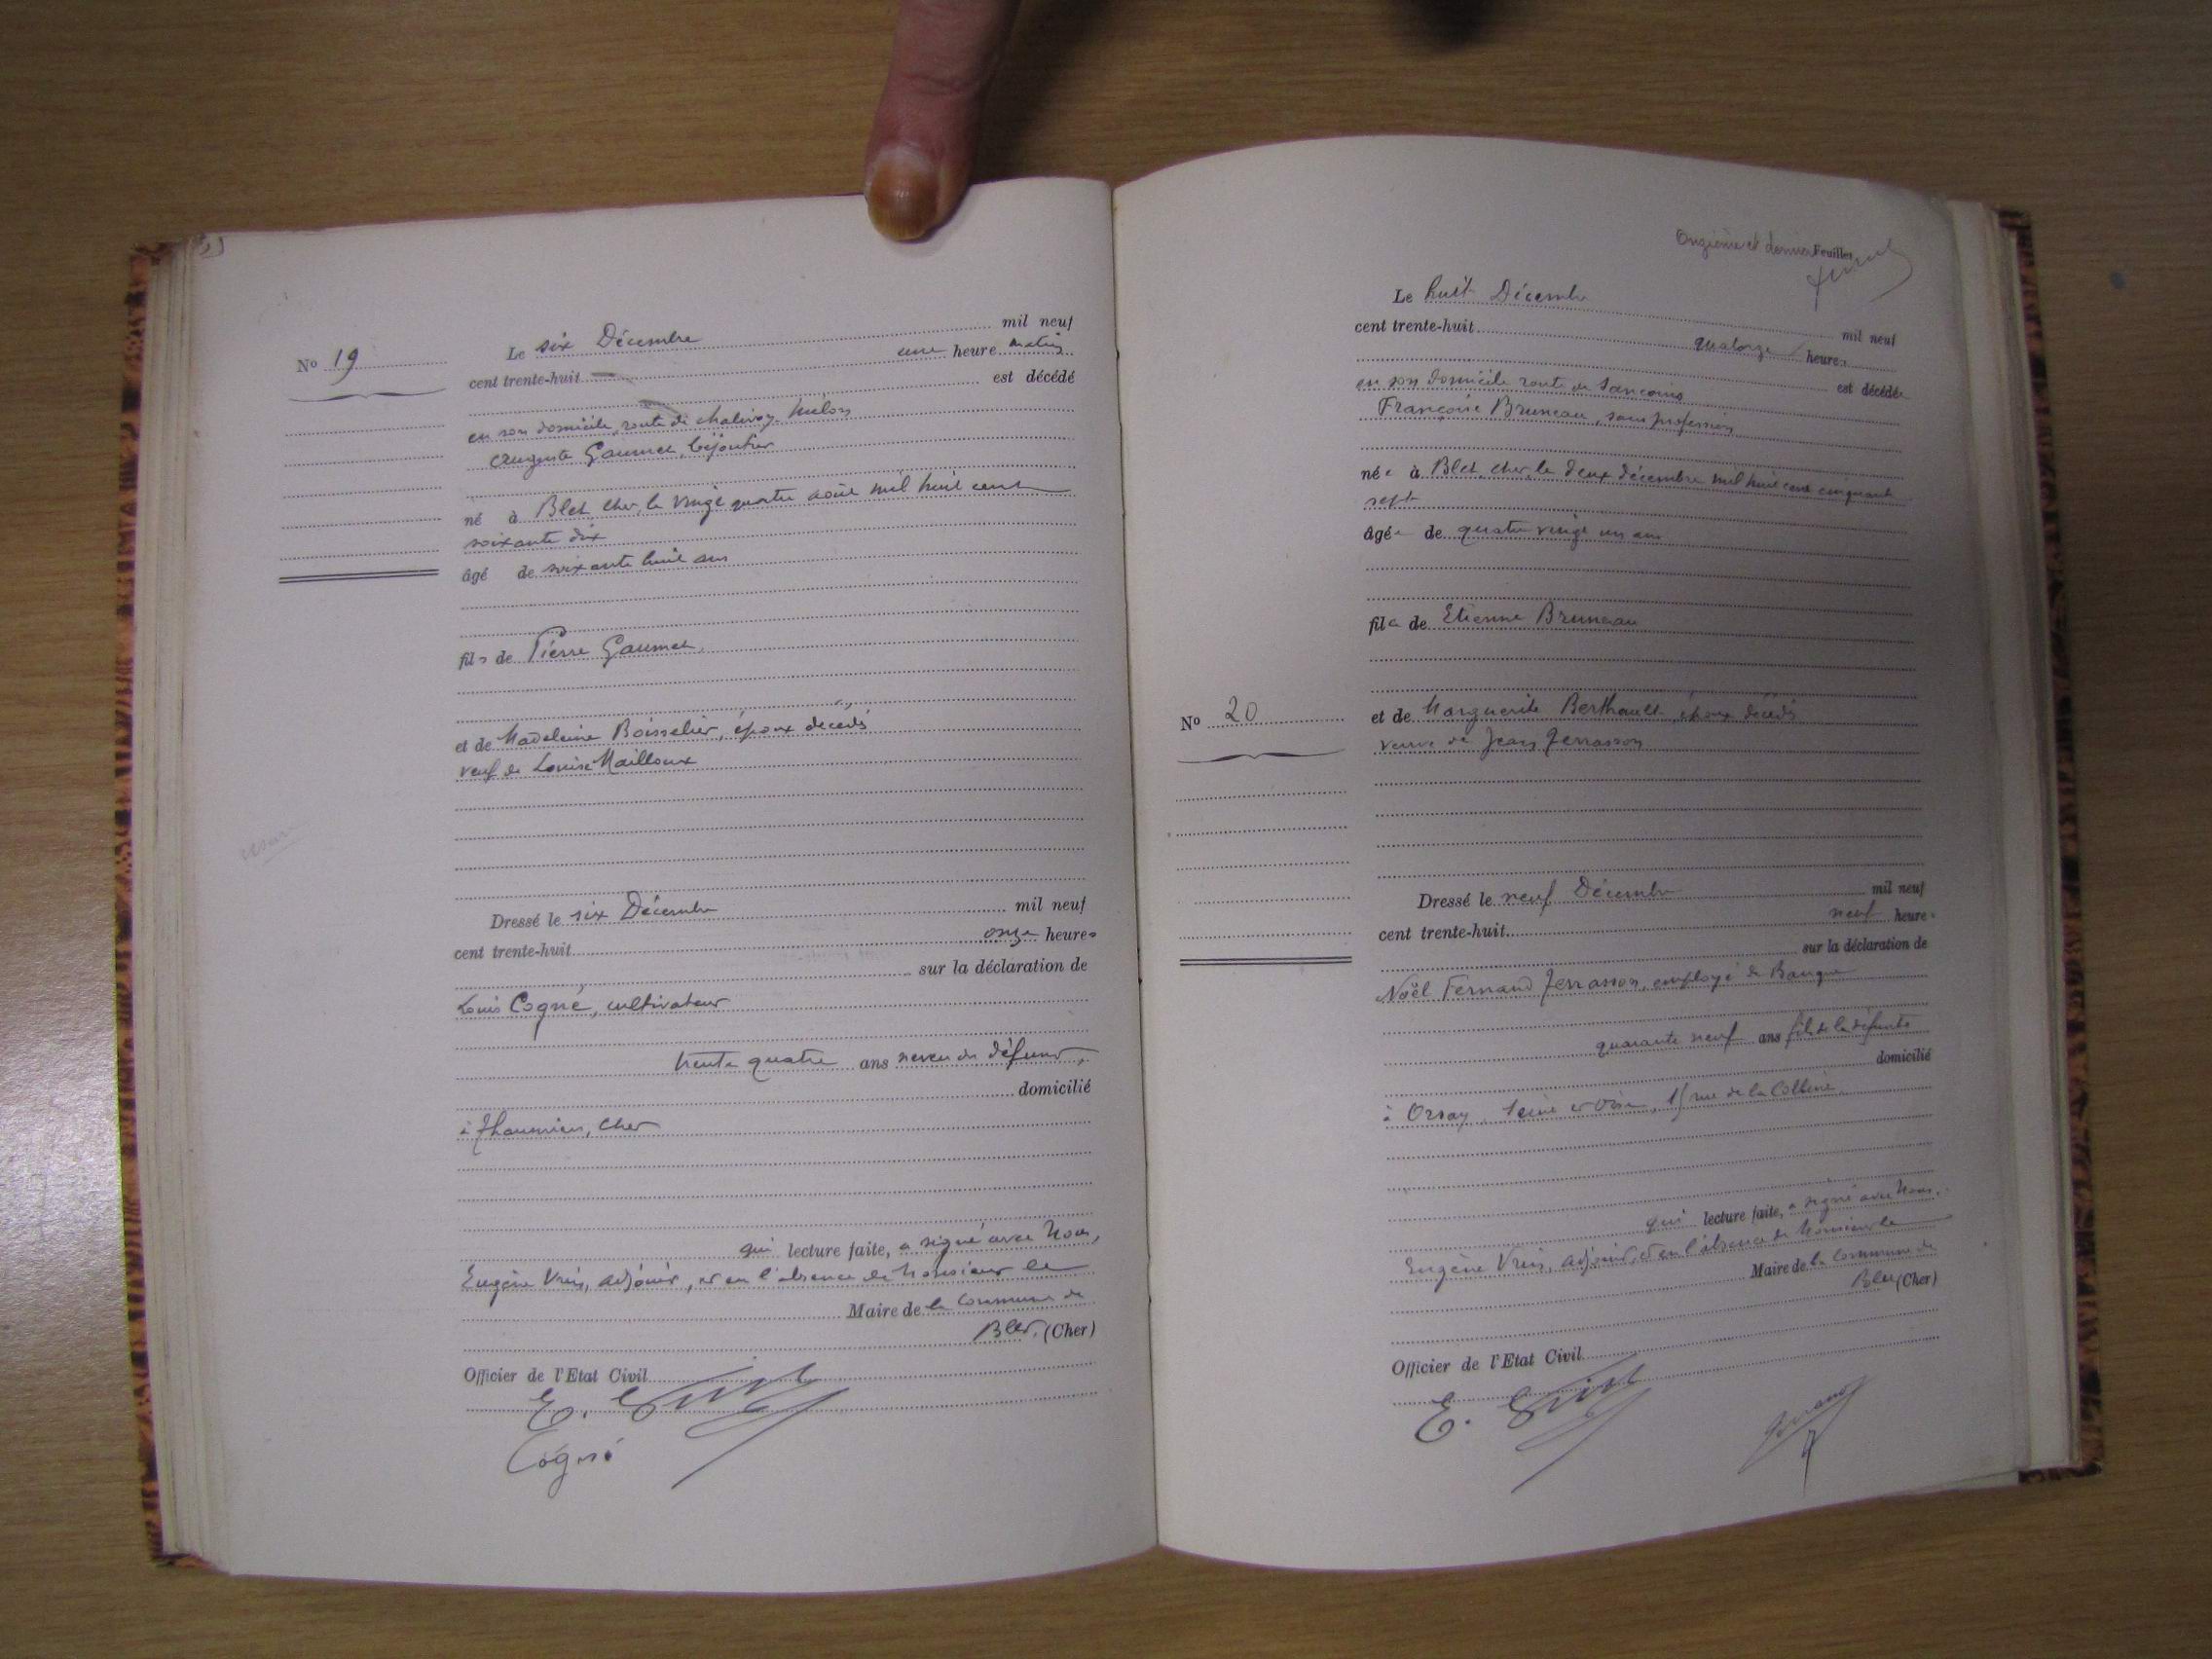 No 19
Le six Décembre mil neuf
cent trente-huit une heure matin
est décédé
en son domicile, route de Chalivoy-Milon
Auguste Gaumet, bijoutier
né à Blet, Cher, le vingt quatre août mil huit cent
soixante dix
âgé de soixante huit ans
fils de Pierre Gaumet
et de Madeleine Boisselier, époux décédés
veuf de Louise Mailloux
Dressé le six Décembre mil neuf
cent trente-huit onze heures
sur la déclaration de
Louis Cogné, cultivateur
trente quatre ans neveu du défunt,
domicilié
à Thaumiers, Cher
qui lecture faite, a signé avec Nous,
Eugène Vrin, adjoint, et en l'absence de Monsieur le
Maire de la Commune de
Blet, (Cher)
Officier de l'Etat Civil
E. Vrin
Cogné
Onzième et dernier Feuillet
No 20
Le huit Décembre mil neuf
cent trente-huit quatorze heures
est décédée
en son domicile route de Sancoins
Françoise Bruneau, sans profession
née à Blet, Cher, le deux décembre mil huit cent cinquante
sept
âgée de quatre vingt un ans
fille de Etienne Bruneau
et de Marguerite Berthault, époux décédés
veuve de Jean Terrasson
Dressé le neuf Décembre mil neuf
cent trente-huit neuf heures
sur la déclaration de
Noël Fernand Terrasson, employé de Banque
quarante neuf ans fils de la défunte
domicilié
à Orsay, Seine et Oise, 15 rue de la Colline
qui lecture faite, a signé avec Nous,
Eugène Vrin, adjoint, et en l'absence de Monsieur le
Maire de la Commune de
Blet (Cher)
Officier de l'Etat Civil
E. Vrin